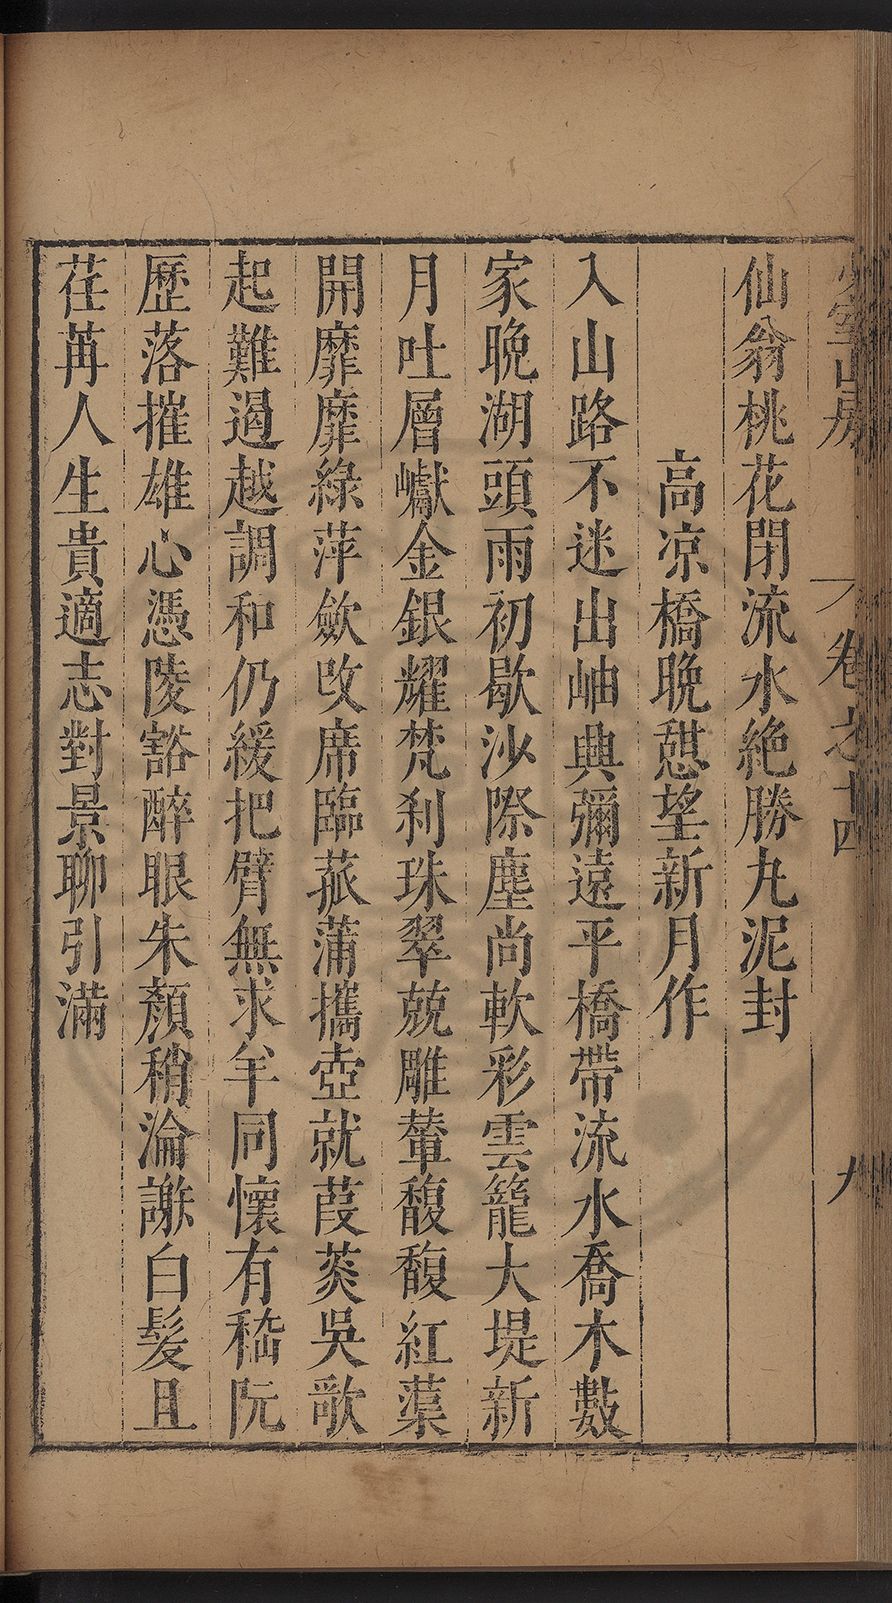 少室山房
卷之十四
九
仙翁桃花閉流水絶勝九泥封
高凉橋晚憇望新月作
入山路不迷出岫興彌遠平橋帶流水喬木數
家晚湖頭雨初歇沙際塵尚軟彩雲籠大堤新
月吐層巘金銀耀梵刹珠翠兢雕輦馥馥紅蕖
開靡靡綠萍斂改席臨菰蒲攜壺就葭菼吳歌
起難遏越調和仍緩把臂無求羊同懷有嵇阮
歷落摧雄心憑陵豁醉眼朱顏稍淪謝白髮且
荏苒人生貴適志對景聊引滿